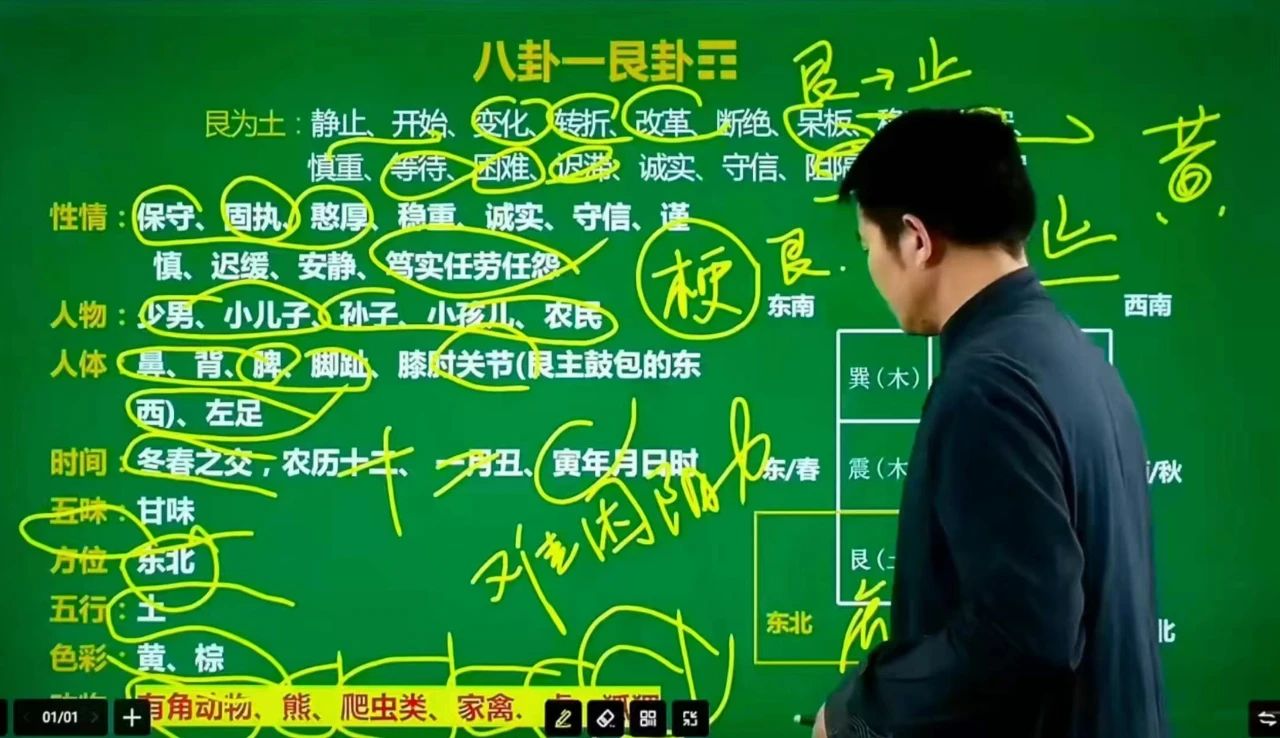 八卦一艮卦☶
艮→止
艮为土：静止、开始、变化、转折、改革、断绝、呆板、
慎重、等待、困难、迟滞、诚实、守信、阻隔
黄
性情：保守、固执、憨厚、稳重、诚实、守信、谨
慎、迟缓、安静、笃实任劳任怨
梗 艮
止
人物：少男、小儿子、孙子、小孩儿、农民
东南
西南
人体：鼻、背、脾、脚趾、膝肘关节(艮主鼓包的东
西)、左足
巽（木）
时间：冬春之交，农历十二、一月丑、寅年月日时
东/春
震（木
/秋
五味：甘味
难 阻力
方位：东北
艮（土
五行：土
东北
北
色彩：黄、棕
有角动物、熊、爬虫类、家禽.
01/01